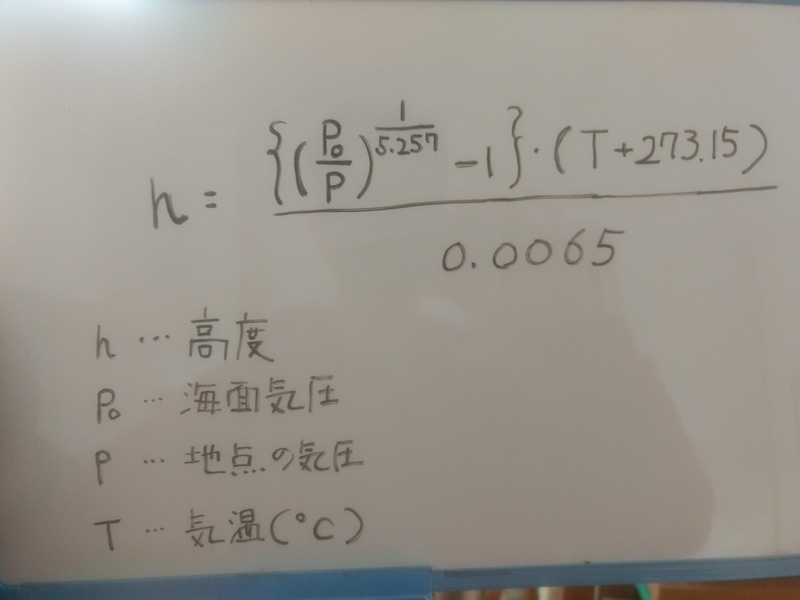 h = {(P₀/P)^(1/5.257) - 1}・(T+273.15) / 0.0065
h … 高度
P₀ … 海面気圧
P … 地点の気圧
T … 気温(℃)